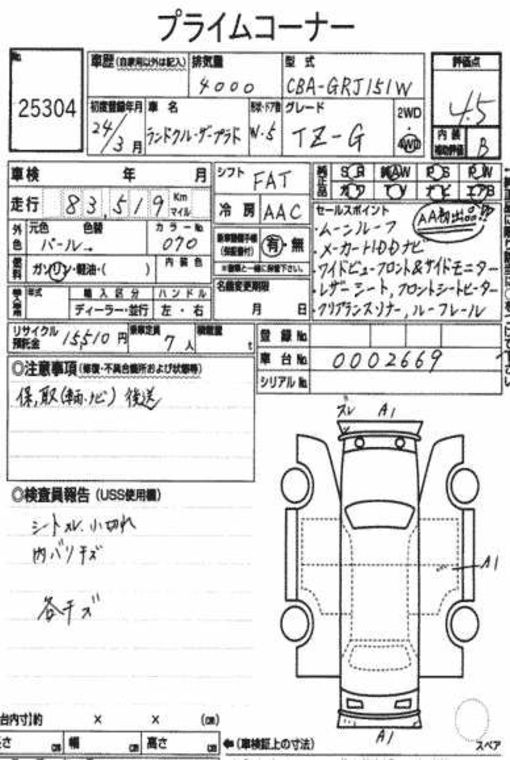 プライムコーナー
No.
25304
車歴 (自家用以外は記入)
排気量
4000
型式
CBA-GRJ151W
評価点
4.5
初度登録年月
24/3月
車名
ランドクルーザープラド
形状・ドア数
W・5
グレード
TZ-G
2WD
4WD
内装補助評価
B
車検 年 月
シフト
FAT
純正品
SR AW PS PW
カワ TV ナビ エアB
走行
83,519
Km
マイル
冷房
AAC
セールスポイント
AA初出品!!!
・ムーンルーフ
・メーカーHDDナビ
・ワイドビューフロント&サイドモニター
・レザーシート, フロントシートヒーター
・クリアランスソナー, ルーフレール
外色
元色 色替
パール
カラーNo.
070
新車整備手帳
(保証書付)
有・無
※書類と一緒に保管下さい。
燃料
ガソリン・軽油・( )
内装色
輸入車
年式
輸入区分
ディーラー・並行
ハンドル
左・右
名義変更期限
月 日
リサイクル預託金
15,510円
乗車定員
7人
積載量
t
登録No.
車台No.
0002669
シリアルNo.
◎注意事項 (修復・不具合箇所および状態等)
保,取(車両,ナビ) 後送
◎検査員報告 (USS使用欄)
シートスレ, 小切れ
内バリキズ
各キズ
ズレ A1
A1
A1
台内寸)約 × × (㎝)
長さ ㎝ 幅 ㎝ 高さ ㎝
←(車検証上の寸法)
スペア